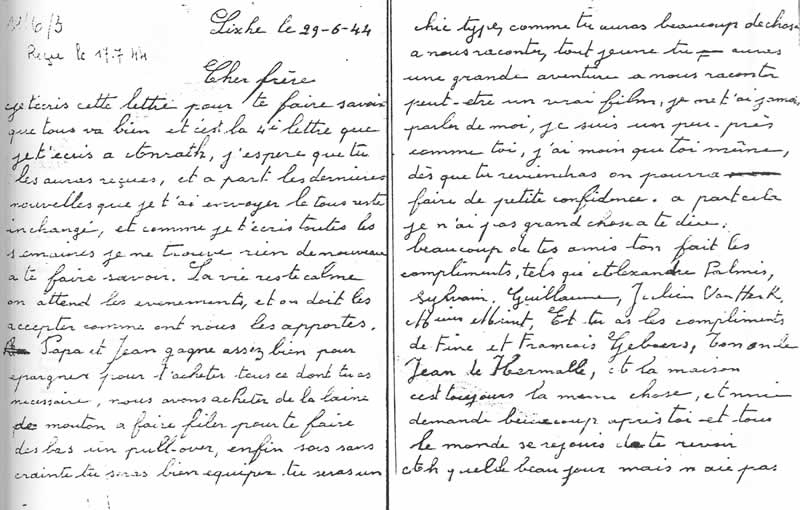 Lixhe le 29-6-44
Reçue le 17.7 44
Cher frère
je t'écris cette lettre pour te faire savoir
que tous va bien et c'est la 4e lettre que
je t'ecris a Anrath, j'espere que tu
les auras reçues, et a part les dernieres
nouvelles que je t'ai envoyer le tous reste
inchangé, et comme je t'écris toutes les
semaines je ne trouve rien de nouveau
a te faire savoir. La vie reste calme
on attend les evenements, et on doit les
accepter comme ont nous les apportes.
Papa et Jean gagne assez bien pour
epargner pour t'acheter tous ce dont tu as
necessaire, nous avons acheter de la laine
de mouton a faire filer pour te faire
des bas un pull-over, enfin sois sans
crainte tu seras bien equiper tu seras un
chic type, comme tu auras beaucoup de chose
a nous raconter, tout jeune tu auras
une grande aventure a nous raconter
peut-etre un vrai film, je ne t'ai jamais
parler de moi, je suis un peu-près
comme toi, j'ai moin que toi même,
dès que tu reviendras on pourra
faire de petite confidence. a part cela
je n'ai pas grand chose a te dire.
beaucoup de tes amis ton fait les
compliments, tels qu'Alexandre Palmis,
Sylvain, Guillaume, Julien Van Herk,
Et tu as les compliments
de Fine et Francois Geboers, ton oncle
Jean de Hermalle, et la maison
c'est toujours la meme chose, et
demande beaucoup apres toi et tous
le monde se rejouis de te revoir
Ah quelle beau jour mais n'aie pas